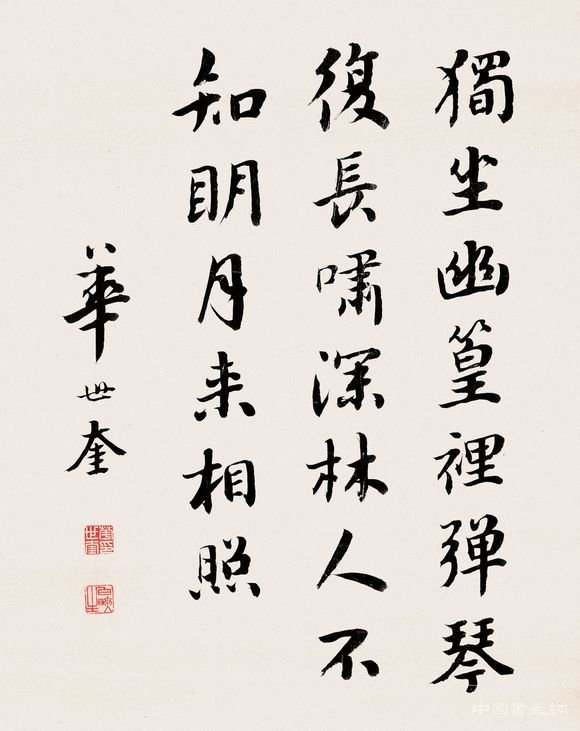 獨坐幽篁裡弹琴
復長嘯深林人不
知明月来相照
華世奎
中国書画网